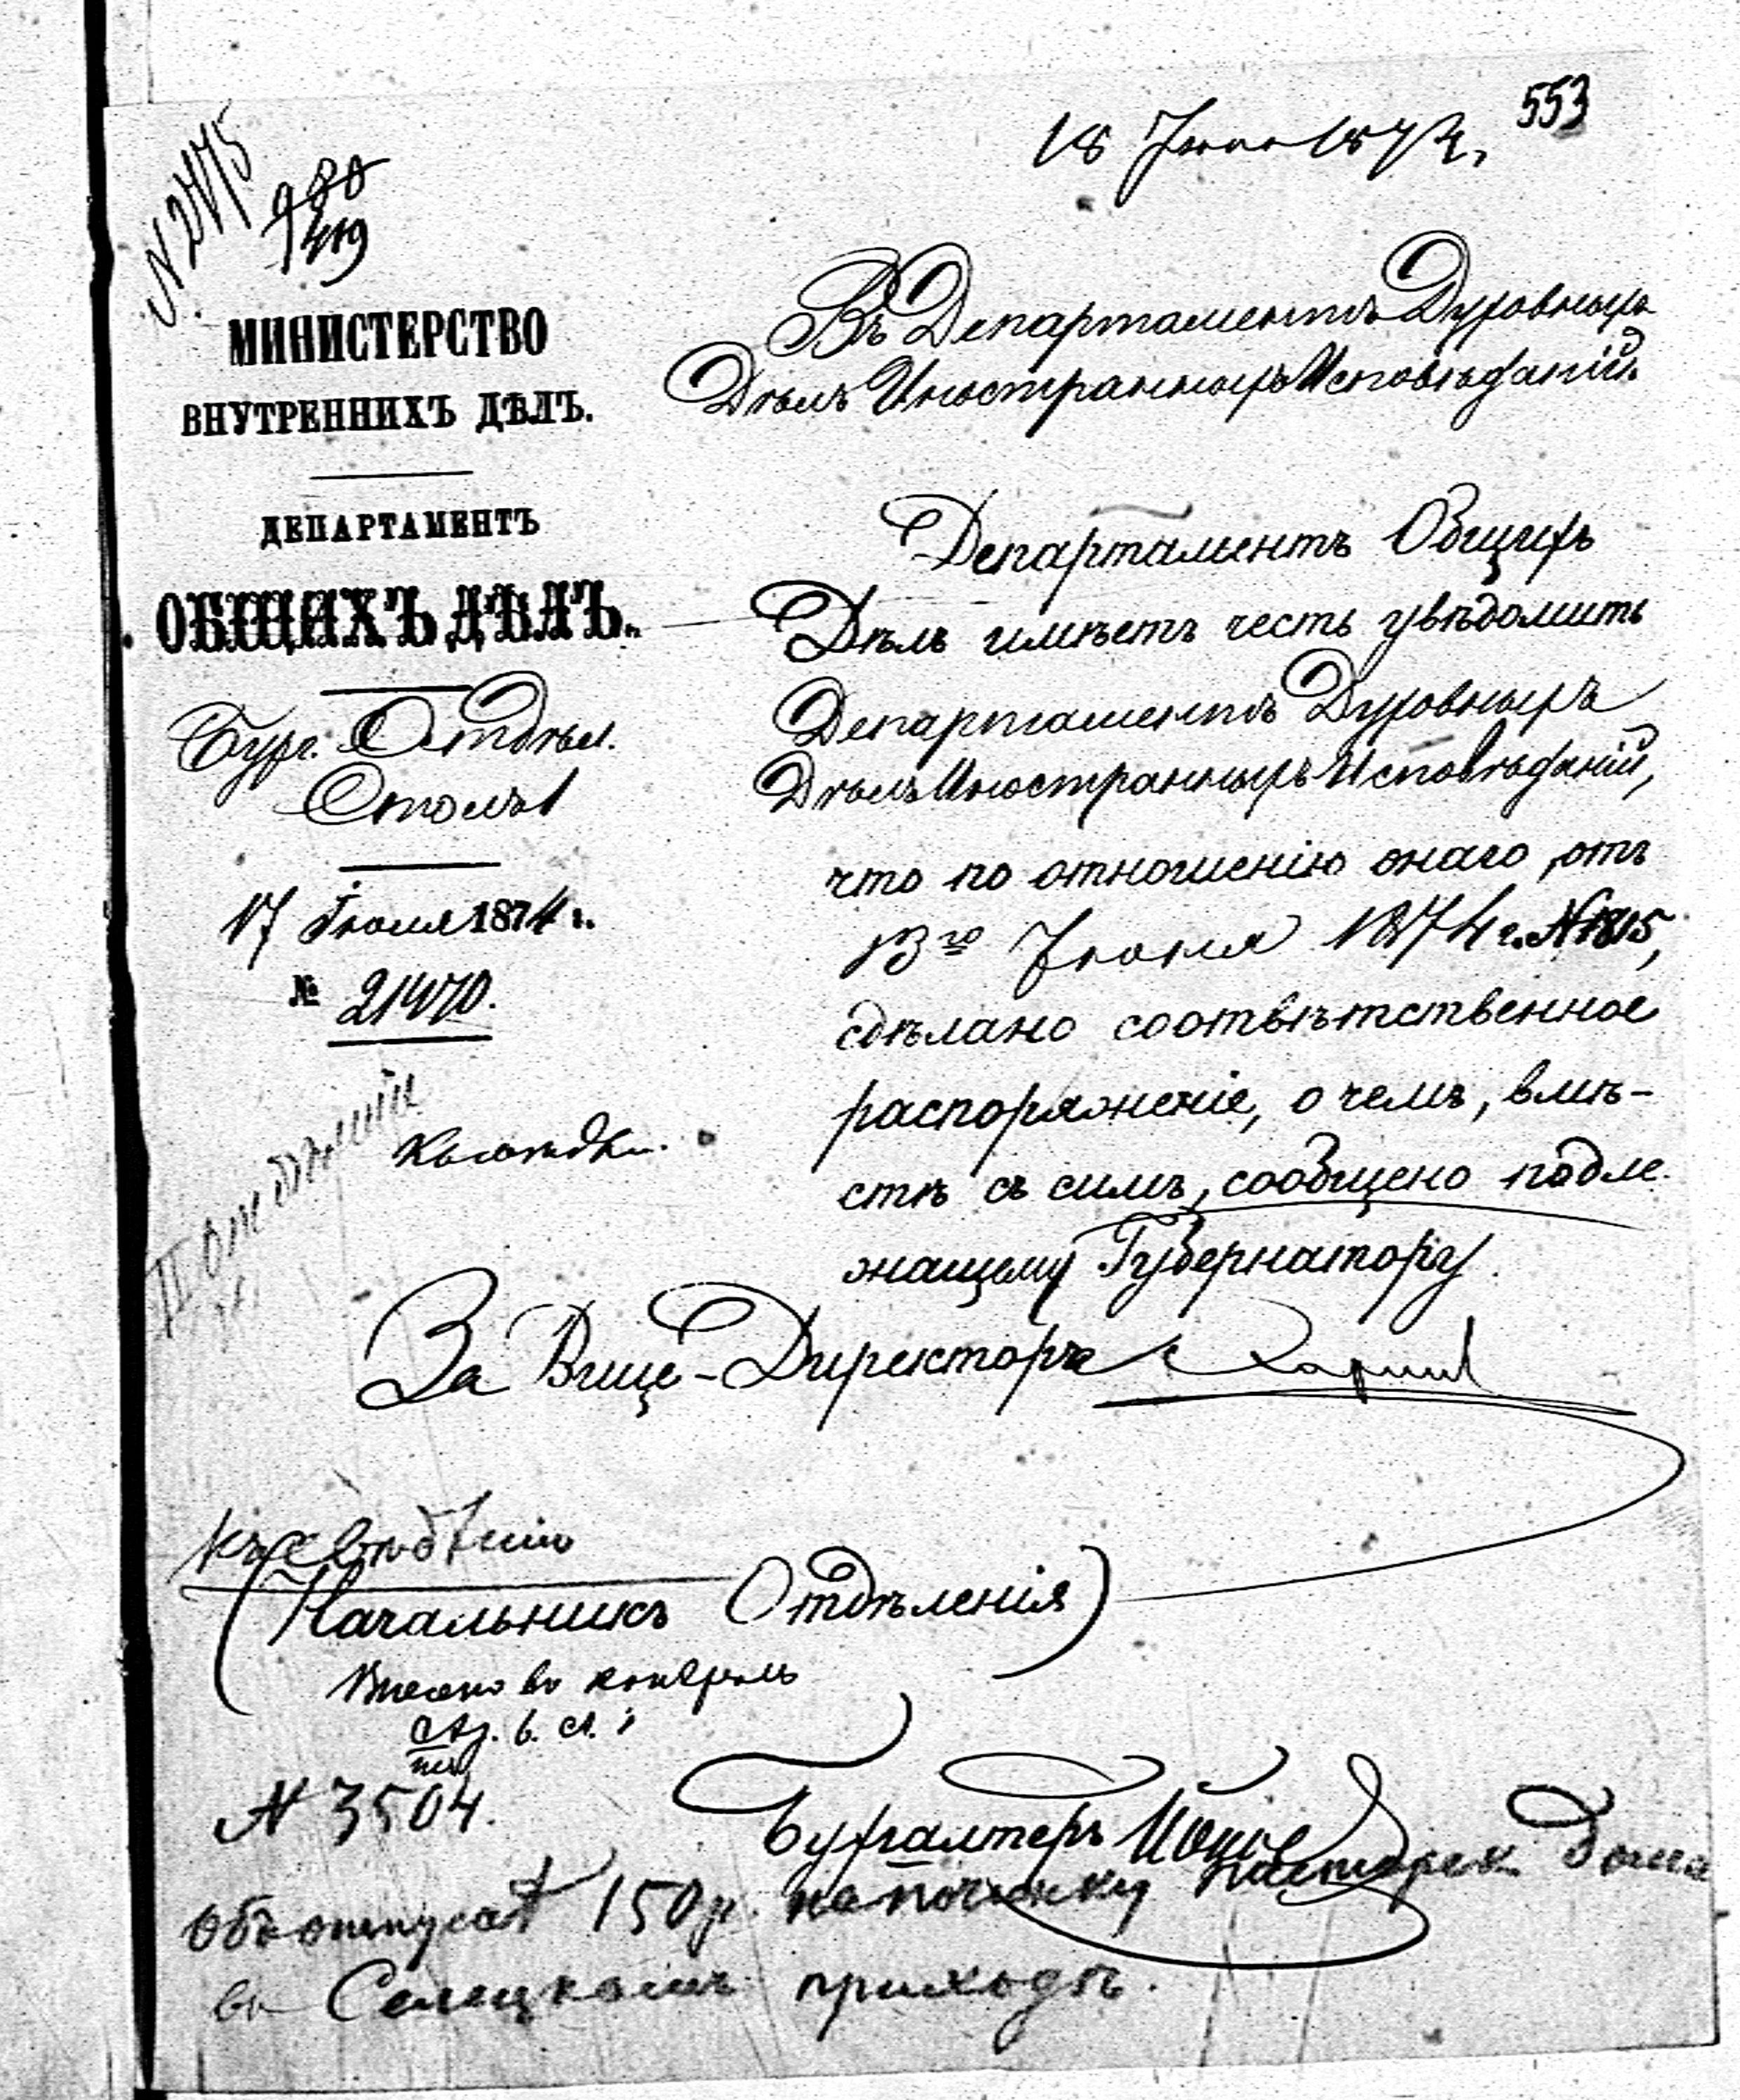 553
18 Июля 1874
N 2475
980
419
МИНИСТЕРСТВО
ВНУТРЕННИХЪ ДѢЛЪ.
ДЕПАРТАМЕНТЪ
ОБЩИХЪ ДѢЛЪ.
Бухг. Отдѣл.
Столъ 1
17 Іюля 1874 г.
№ 21470.
II Отдѣленіе
Въ Департаментъ Духовныхъ
Дѣлъ Иностранныхъ Исповѣданій.
Департаментъ Общихъ
Дѣлъ имѣетъ честь увѣдомить
Департаментъ Духовныхъ
Дѣлъ Иностранныхъ Исповѣданій,
что по отношенію онаго, отъ
13го Іюня 1874 г. № 1815,
сдѣлано соотвѣтственное
распоряженіе, о чемъ, вмѣ-
стѣ съ симъ, сообщено подле
жащему Губернатору.
За Вице-Директора
Къ свѣдѣнію
(Начальникъ Отдѣленія)
Внесено въ контроль
N 3504.
Бухгалтеръ
Объ отпускѣ 150 р. на починку пасторск. дома
въ Селецкомъ приходѣ.